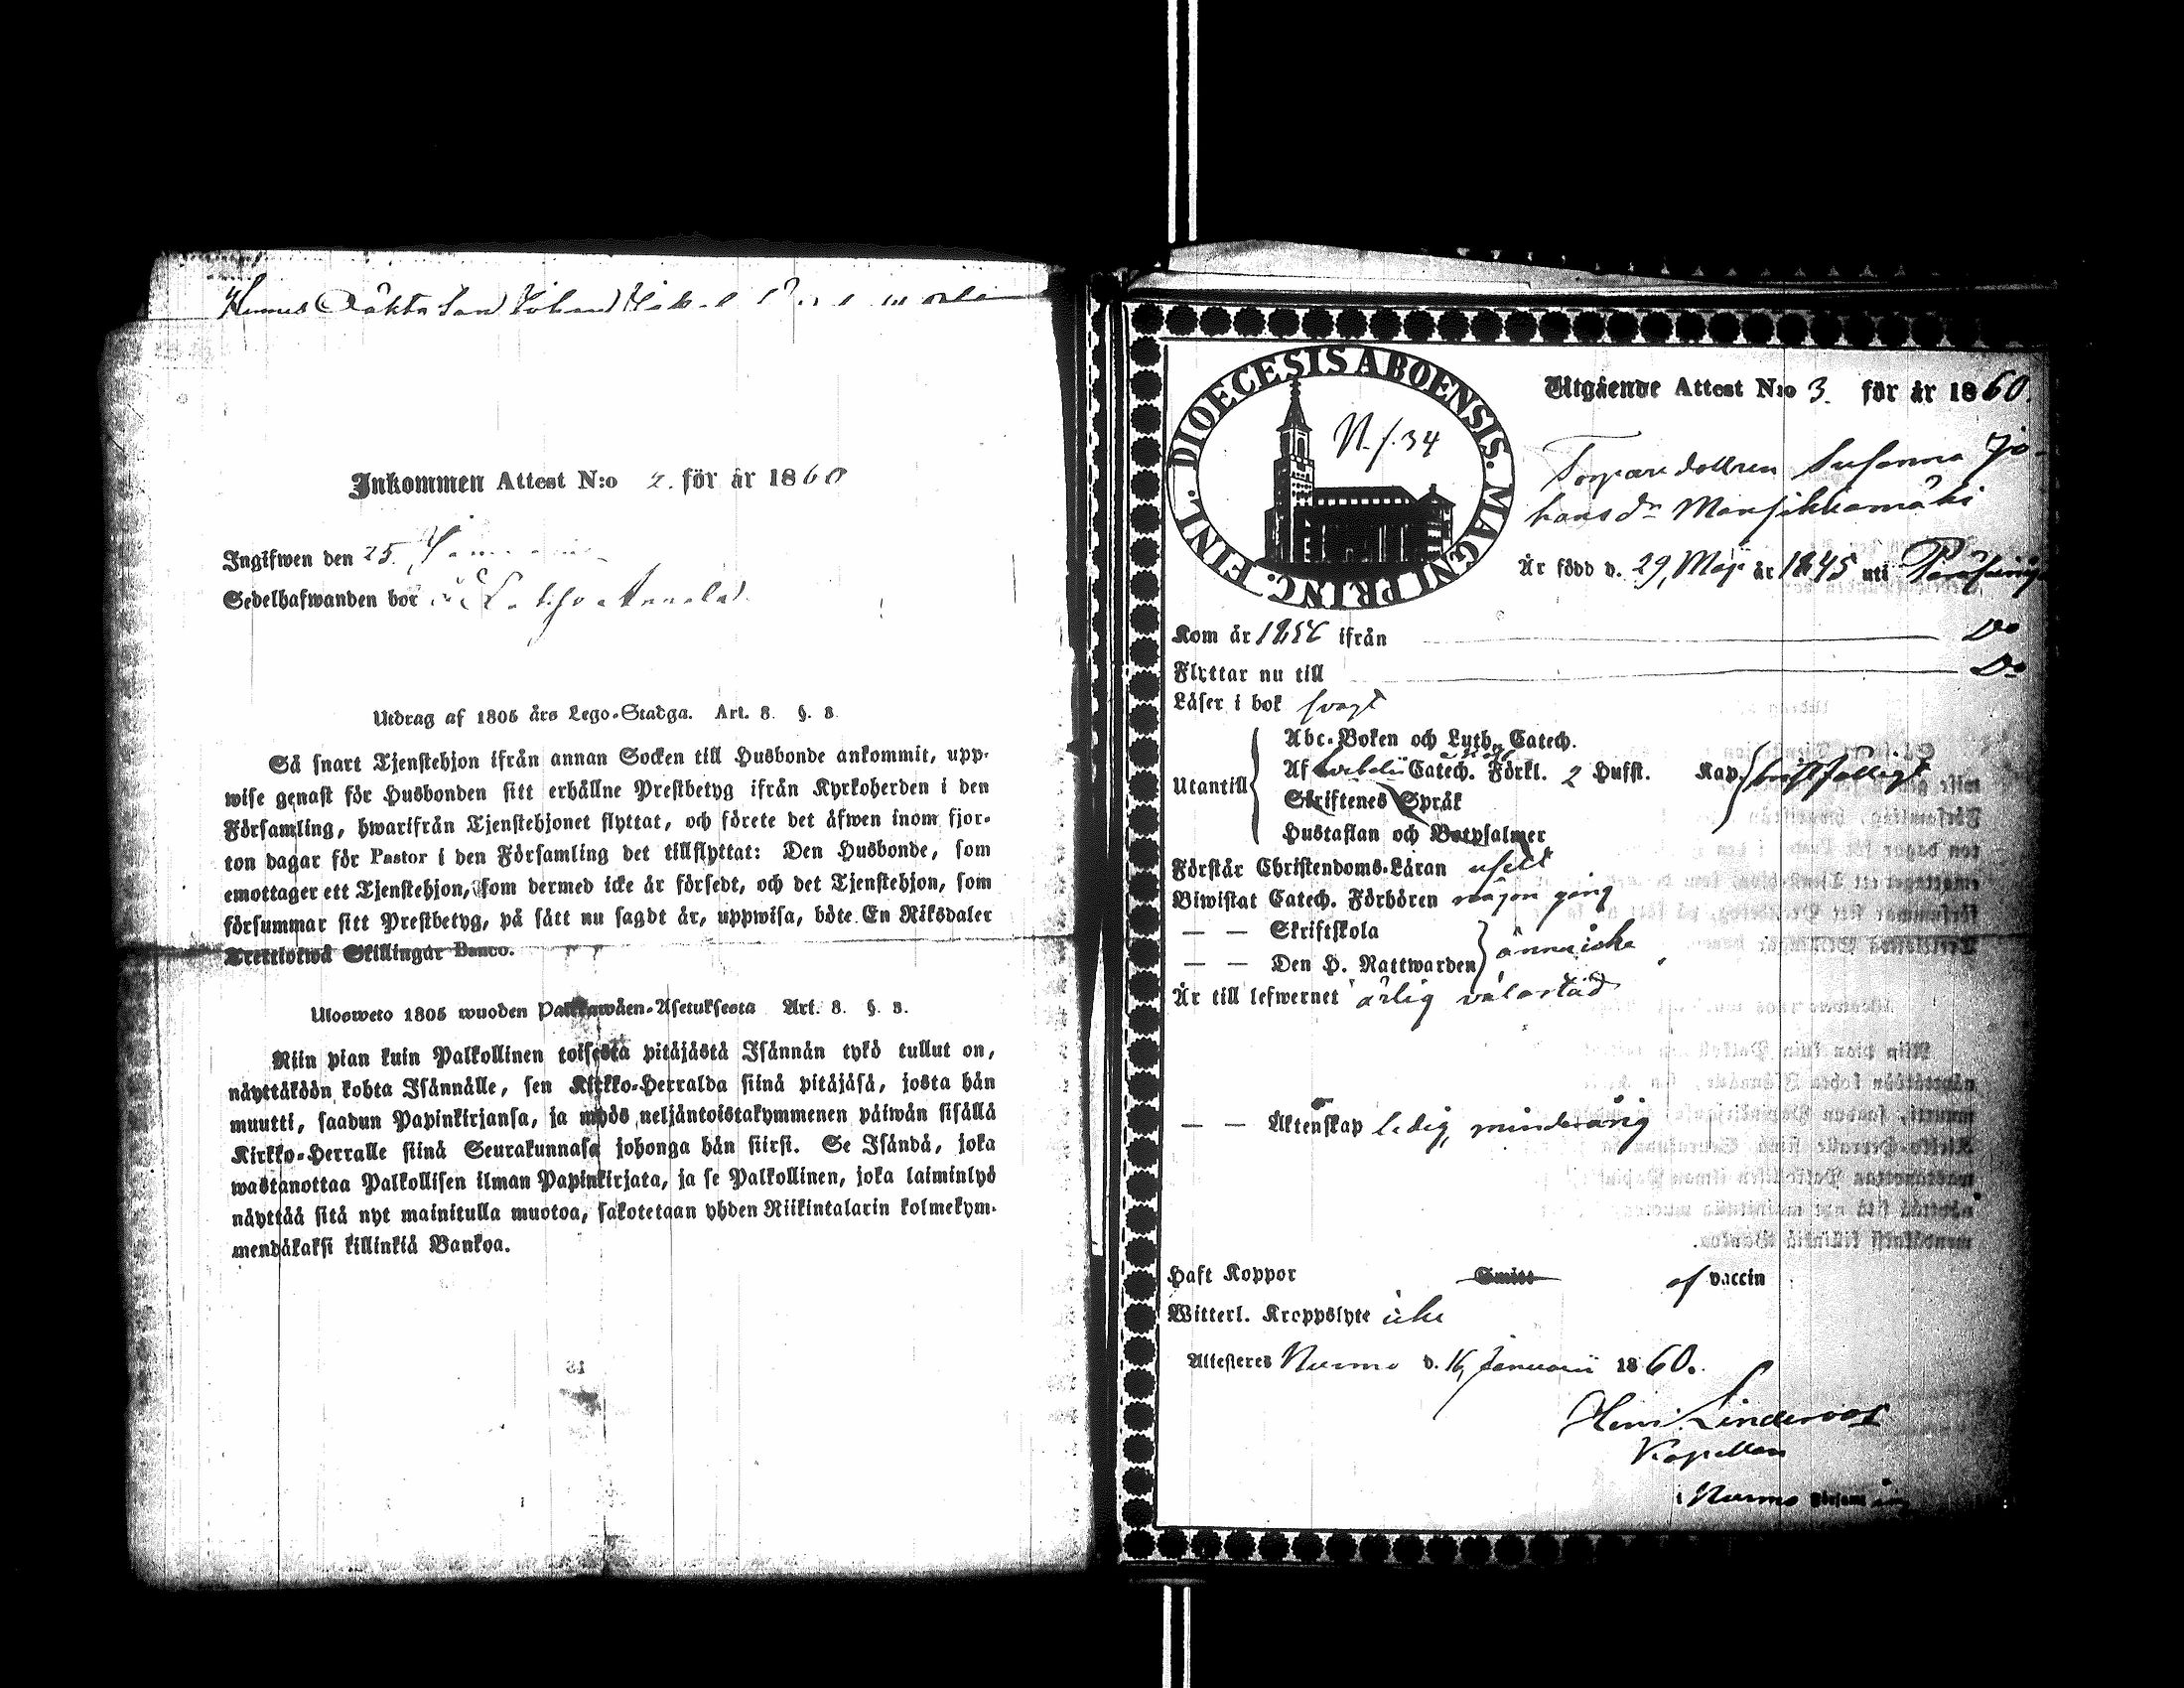 Inkommen Attest N:o 2. för år 1860
Ingifwen den 25.
Sedelhafwanden bor
Utdrag af 1805 års Lego-Stadga. Art. 8. §. 8.
Så snart Tjenstehjon ifrån annan Socken till Husbonde ankommit, upp-
wise genast för Husbonden sitt erhållne Prestbetyg ifrån Kyrkoherden i den
Församling, hwarifrån Tjenstehjonet flyttat, och förete det äfwen inom fjor-
ton dagar för Pastor i den Församling det tillflyttat: Den Husbonde, som
emottager ett Tjenstehjon, som dermed icke är försedt, och det Tjenstehjon, som
försummar sitt Prestbetyg, på sätt nu sagdt är, uppwisa, böte En Riksdaler
Trettiotwå Skillingar Banco.
Ulosweto 1805 wuoden Palkkawäen-Asetuksesta Art. 8. §. 8.
Niin pian kuin Palkollinen toisesta pitäjästä Isännän tykö tullut on,
näyttäköön kohta Isännälle, sen Kirkko-Herralda siinä pitäjäsä, josta hän
muutti, saadun Papinkirjansa, ja myös neljäntoistakymmenen päiwän sisällä
Kirkko-Herralle siinä Seurakunnasa johonga hän siirsi. Se Isändä, joka
wastanottaa Palkollisen ilman Papinkirjata, ja se Palkollinen, joka laiminlyö
näyttää sitä nyt mainitulla muotoa, sakotetaan yhden Riikintalarin kolmekym-
mendäkaksi killinkiä Bankoa.
DIOECESIS ABOENSIS. MAGNI PRINC. FINL.
N. f. 34
Utgående Attest N:o 3. för år 1860.
Torparedottren Susanna Jo-
hansdr Mansikkamäki
Är född d. 29, Maj år 1845 uti
Kom år ifrån Do
Flyttar nu till Do
Läser i bok svagt
Abc-Boken och Luth. Catech.
Utantill Af Catech. Förkl. 2 Hufst. Kap. bristfälligt
Skriftenes Språk
Hustaflan och Botpsalmer
Förstår Christendoms-Läran uselt
Biwistat Catech. Förhören någon gång
— — Skriftskola
— — Den H. Nattwarden ännu icke
Är till lefwernet ärlig
— — Äktenskap ledig, minderårig
Haft Koppor Smitt af vaccin
Witterl. Kroppslyte icke
Attesteres Nurmo d. 16, Januarii 1860.
Linderoos
Kapellan
i Nurmo Församling